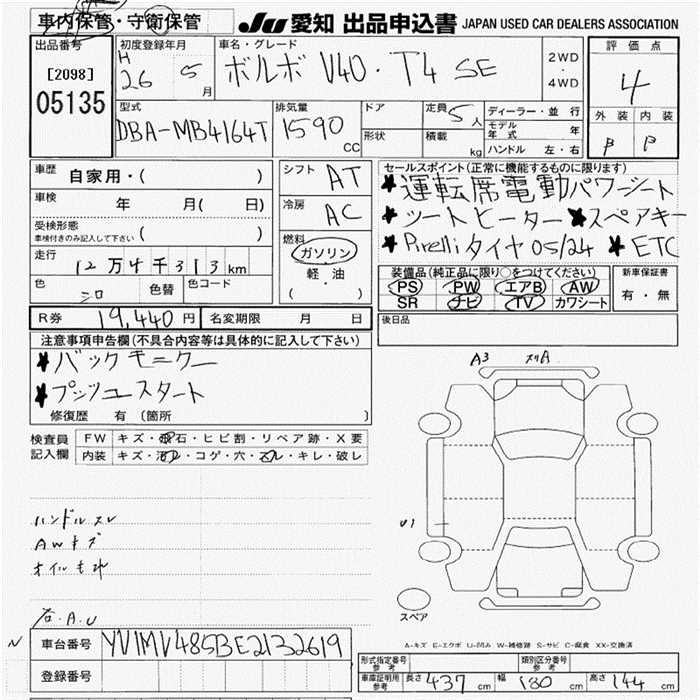 車内保管・守衛保管 JU 愛知 出品申込書 JAPAN USED CAR DEALERS ASSOCIATION
出品番号 初度登録年月 車名・グレード 評価点
[2098] H 26 5月 ボルボ V40・T4 SE 2WD ・ 4WD 4
05135 型式 排気量 ドア 定員 5人 ディーラー・並行 外装 内装
DBA-MB4164T 1590 CC 形状 積載 kg モデル年式 年 B B
ハンドル 左・右
車歴 自家用・( ) シフト AT セールスポイント(正常に機能するものに限ります)
車検 年 月( 日) 冷房 AC ★運転席電動パワーシート
受検形態 ( ) ★シートヒーター ★スペアキー
車検付きのみ記入して下さい 燃料 ★Pirelliタイヤ 05/24 ★ETC
走行 12万4千313km ガソリン 装備品(純正品に限り○をつけてください) 新車保証書
色 シロ 色替 色コード 軽・油 PS PW エアB AW 有・無
( ) SR ナビ TV カワシート
R券 19,440円 名変期限 月 日 後日品
注意事項申告欄(不具合内容等は具体的に記入して下さい)
★バックモニター A3 スリA
★プッシュスタート
修復歴 有 (箇所 )
検査員 FW キズ・飛石・ヒビ割・リペア跡・X要
記入欄 内装 キズ・汚レ・コゲ・穴・スレ・キレ・破レ
ハンドルスレ U1
AWキズ
オイルもれ
右.A.U スペア
A-キズ E-エクボ U-凹み W-補修跡 S-サビ C-腐食 XX-交換済
N 車台番号 YV1MV485BE2132619
登録番号 形式指定番号 参考 類別区分番号 参考
車庫証明用 参考 長さ 437 cm 幅 180 cm 高さ 144 cm